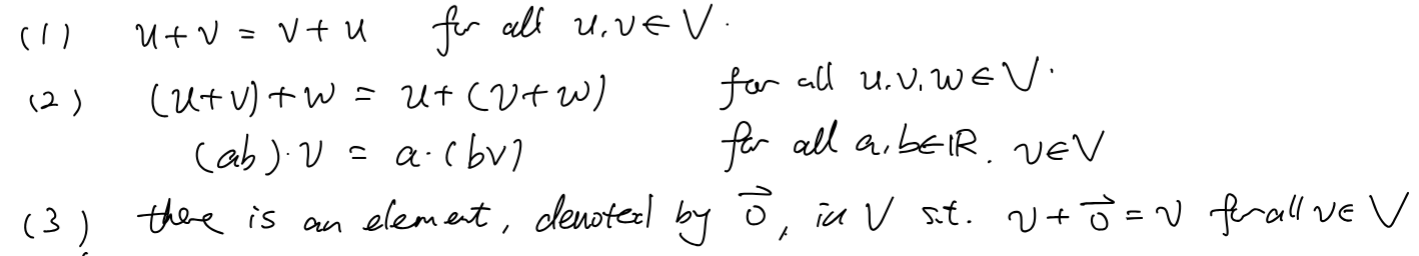 (1) u+v = v+u for all u,v∈V.
(2) (u+v)+w = u+(v+w) for all u,v,w∈V.
(ab)·v = a·(bv) for all a,b∈ℝ, v∈V
(3) there is an element, denoted by \vec{0}, in V s.t. v+\vec{0}=v for all v∈V